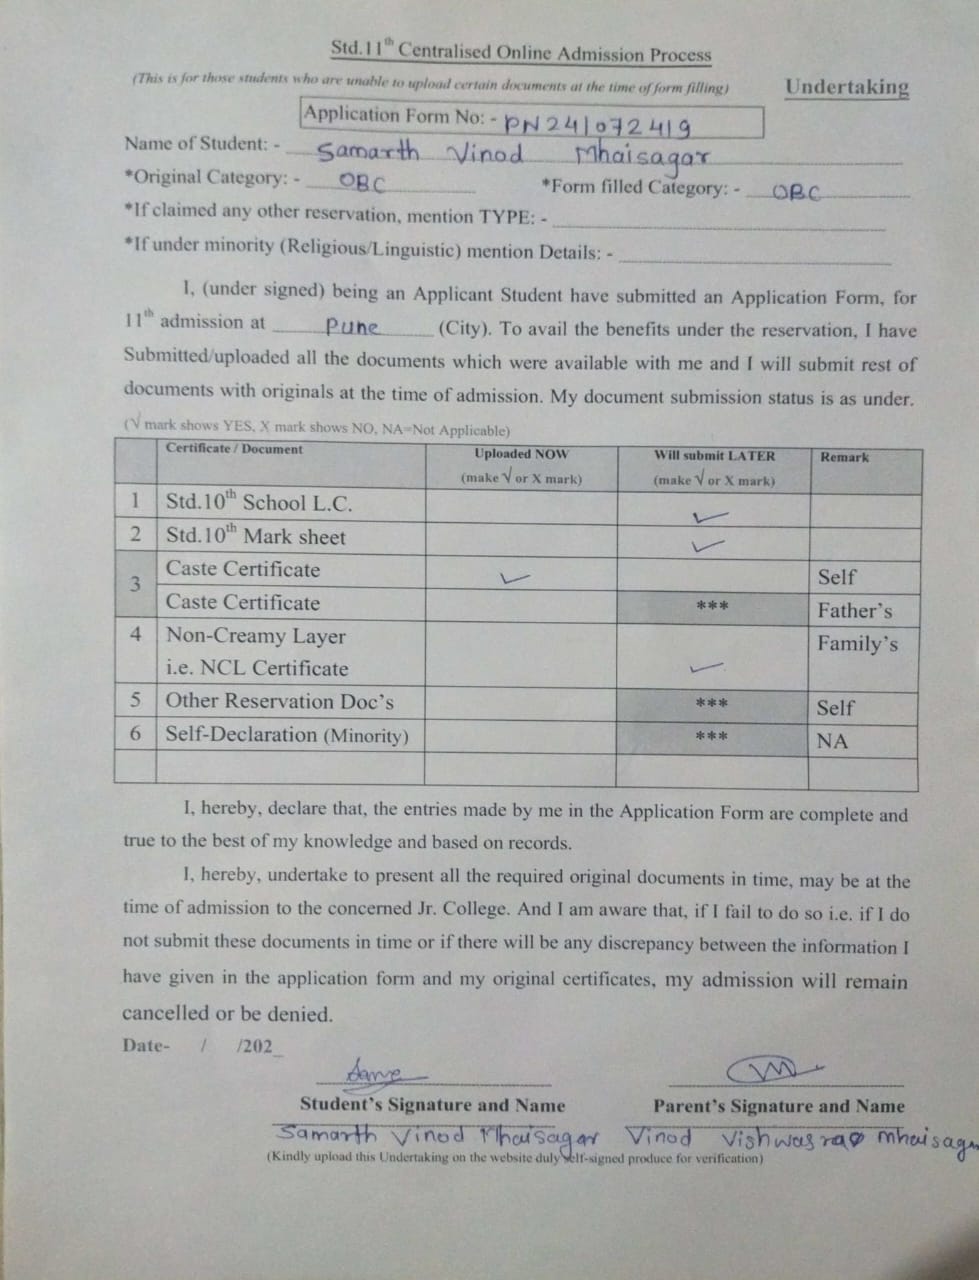 Std.11th Centralised Online Admission Process
(This is for those students who are unable to upload certain documents at the time of form filling)
Undertaking
Application Form No: - PN241072419
Name of Student: - Samarth Vinod Mhaisagar
*Original Category: - OBC *Form filled Category: - OBC
*If claimed any other reservation, mention TYPE: -
*If under minority (Religious/Linguistic) mention Details: -
I, (under signed) being an Applicant Student have submitted an Application Form, for
11th admission at Pune (City). To avail the benefits under the reservation, I have
Submitted/uploaded all the documents which were available with me and I will submit rest of
documents with originals at the time of admission. My document submission status is as under.
(√ mark shows YES, X mark shows NO, NA=Not Applicable)
Certificate / Document Uploaded NOW Will submit LATER Remark
(make √ or X mark) (make √ or X mark)
1 Std.10th School L.C. ✓
2 Std.10th Mark sheet ✓
3 Caste Certificate ✓ Self
Caste Certificate *** Father's
4 Non-Creamy Layer Family's
i.e. NCL Certificate ✓
5 Other Reservation Doc's *** Self
6 Self-Declaration (Minority) *** NA
I, hereby, declare that, the entries made by me in the Application Form are complete and
true to the best of my knowledge and based on records.
I, hereby, undertake to present all the required original documents in time, may be at the
time of admission to the concerned Jr. College. And I am aware that, if I fail to do so i.e. if I do
not submit these documents in time or if there will be any discrepancy between the information I
have given in the application form and my original certificates, my admission will remain
cancelled or be denied.
Date- / /202_
Student's Signature and Name Parent's Signature and Name
Samarth Vinod Mhaisagar Vinod Vishwasrao Mhaisagar
(Kindly upload this Undertaking on the website duly self-signed produce for verification)